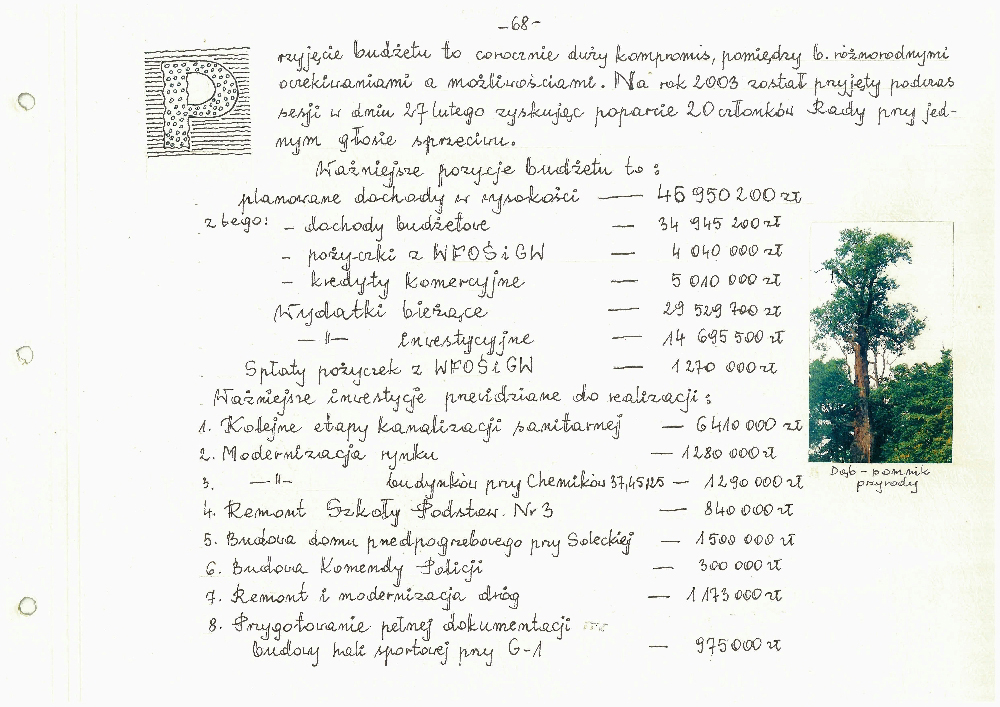 -68-
Przyjęcie budżetu to corocznie duży kompromis, pomiędzy b. różnorodnymi
oczekiwaniami a możliwościami. Na rok 2003 został przyjęty podczas
sesji w dniu 27 lutego zyskując poparcie 20 członków Rady przy jed-
nym głosie sprzeciwu.
Ważniejsze pozycje budżetu to :
planowane dochody w wysokości — 45 950 200 zł
z tego: - dochody budżetowe — 34 945 200 zł
- pożyczki z WFOŚiGW — 4 040 000 zł
- kredyty komercyjne — 5 010 000 zł
Wydatki bieżące — 29 529 700 zł
—"— inwestycyjne — 14 695 500 zł
Spłaty pożyczek z WFOŚiGW — 1 270 000 zł
Ważniejsze inwestycje przewidziane do realizacji :
1. Kolejne etapy kanalizacji sanitarnej — 6 410 000 zł
2. Modernizacja rynku — 1 280 000 zł
3. —"— budynków przy Chemików 37,45,125 — 1 290 000 zł
4. Remont Szkoły Podstaw. Nr 3 — 840 000 zł
5. Budowa domu przedpogrzebowego przy Soleckiej — 1 500 000 zł
6. Budowa Komendy Policji — 300 000 zł
7. Remont i modernizacja dróg — 1 173 000 zł
8. Przygotowanie pełnej dokumentacji
budowy hali sportowej przy G-1 — 975 000 zł
Dąb - pomnik
przyrody